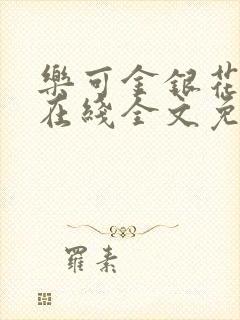 樂可金銀花
在綫全文免
羅素